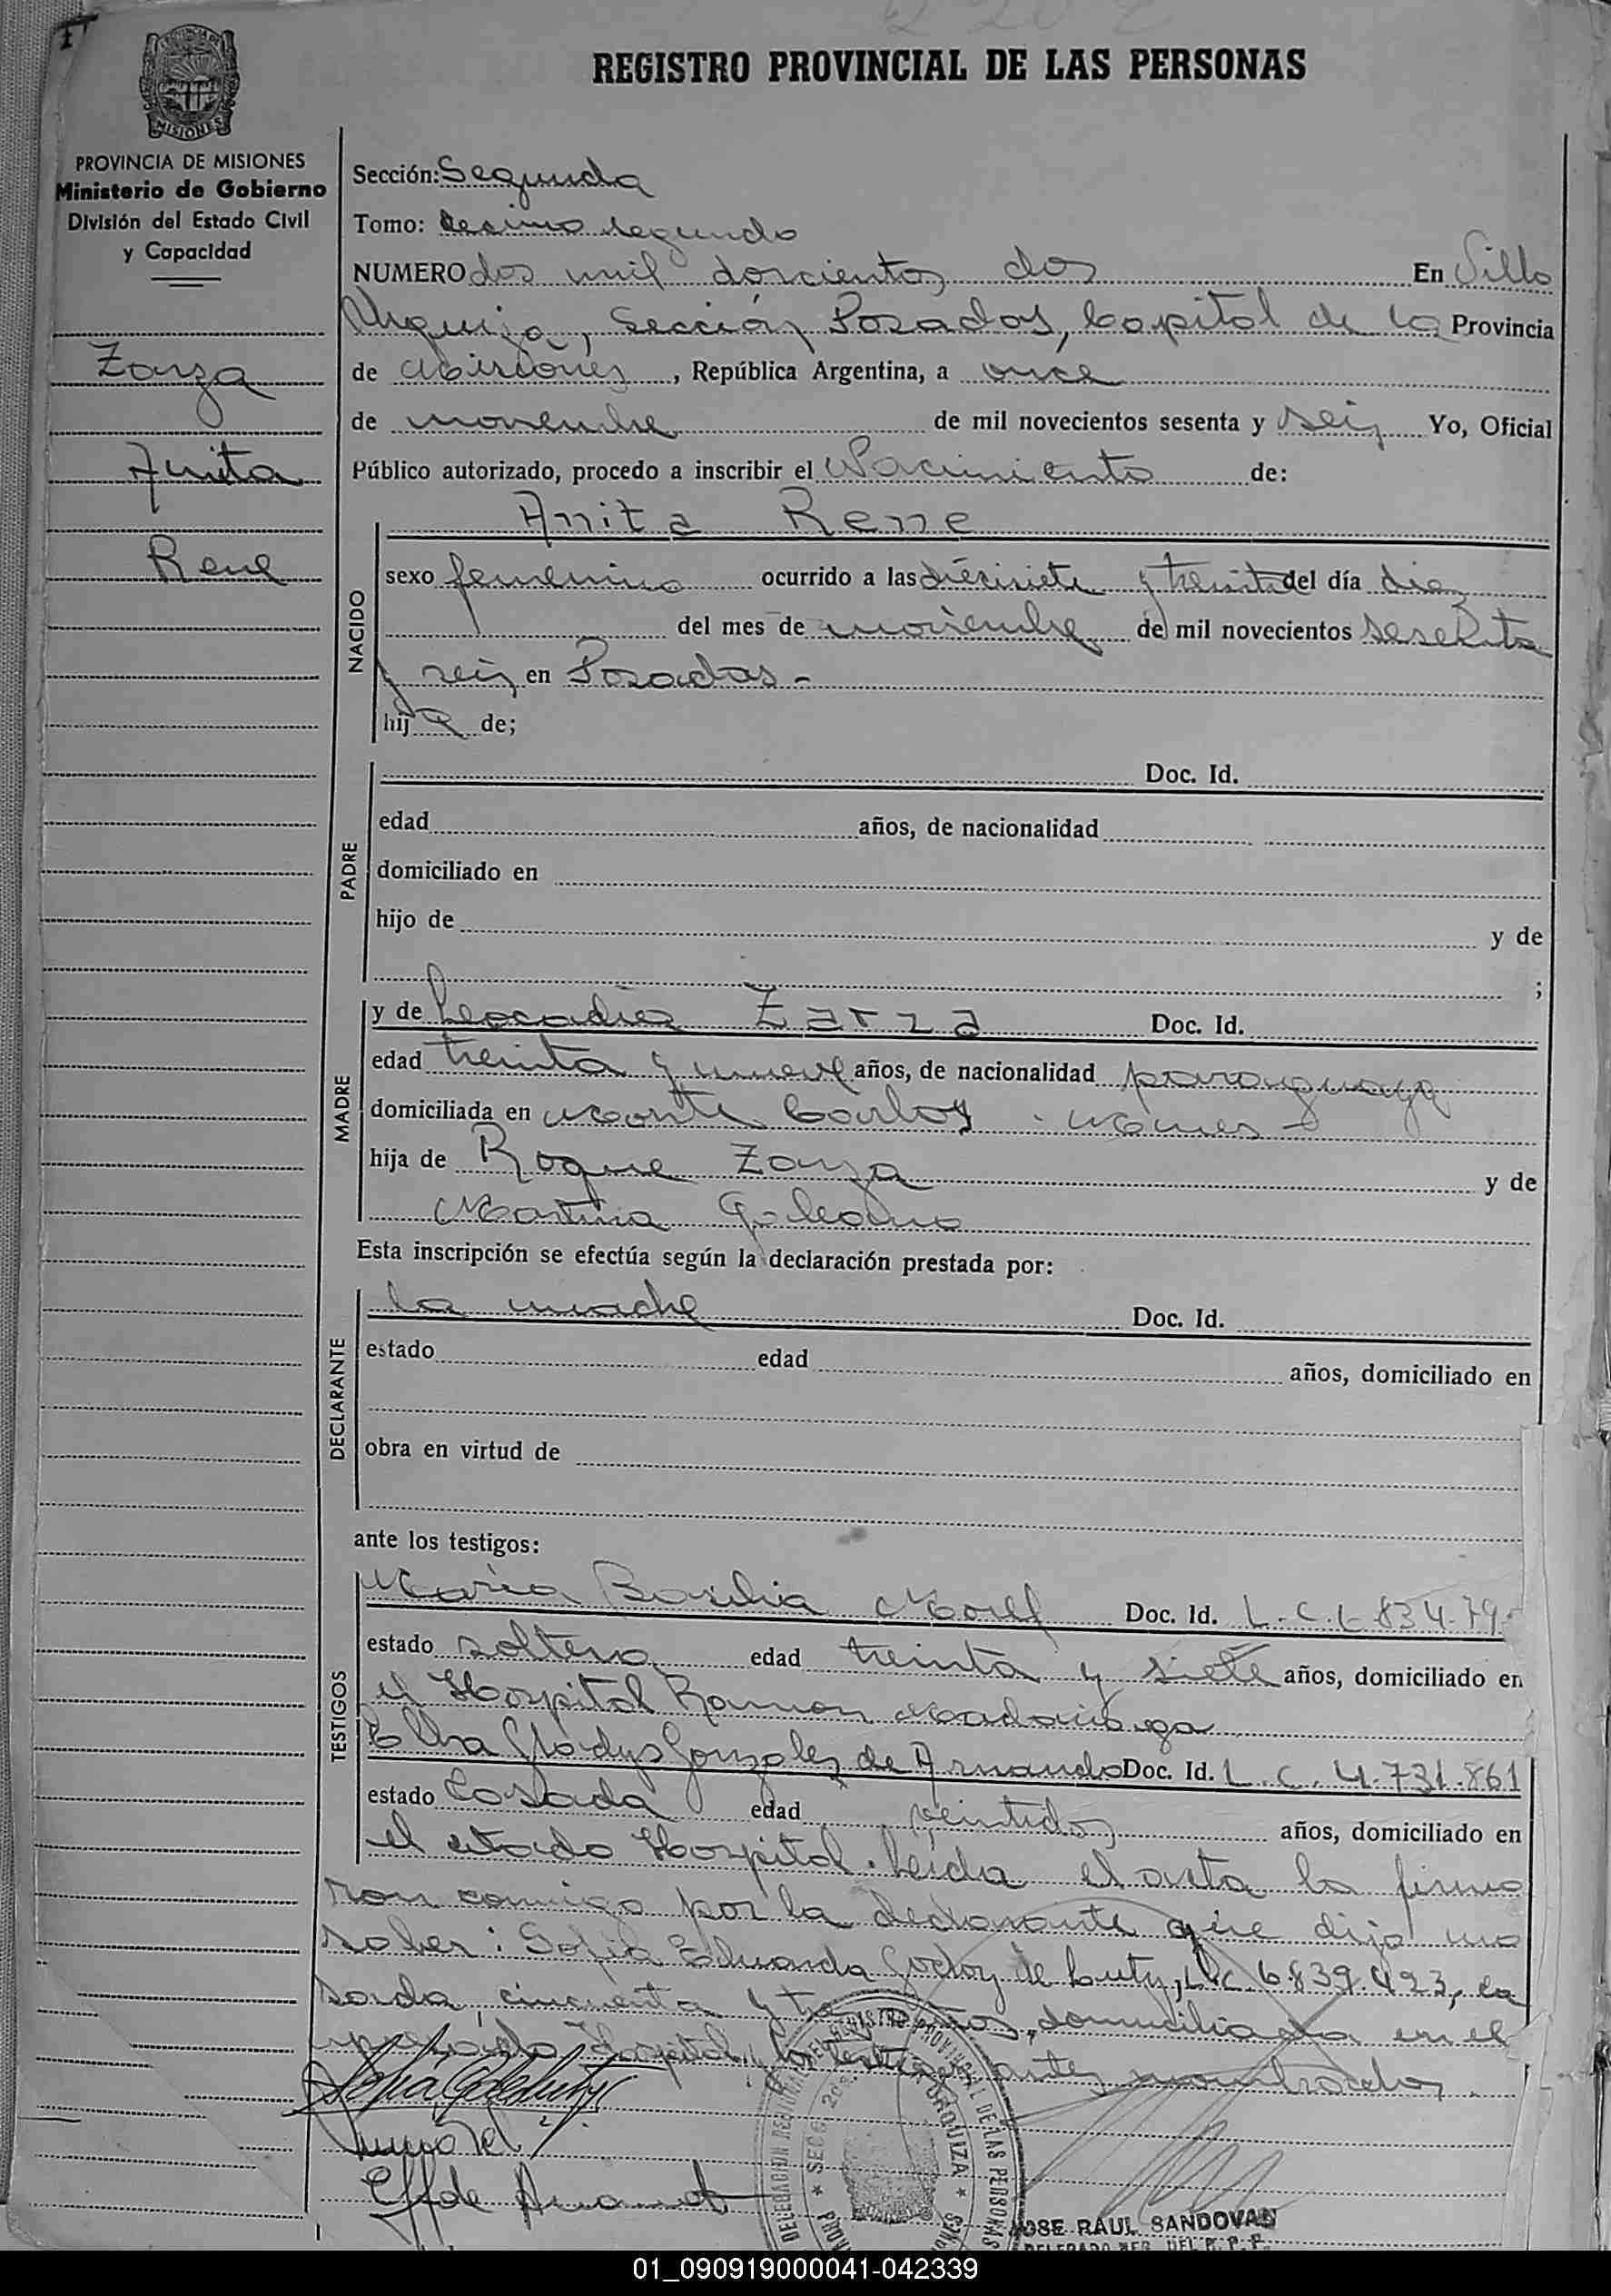 2202
REGISTRO PROVINCIAL DE LAS PERSONAS
MISIONES
PROVINCIA DE MISIONES
Ministerio de Gobierno
División del Estado Civil
y Capacidad
Zarza
Anita
Rene
Sección: Segunda
Tomo: decimo segundo
NUMERO dos mil doscientos dos En Villa
Urquiza, Sección Posadas, Capital de la Provincia
de Misiones, República Argentina, a once
de noviembre de mil novecientos sesenta y seis Yo, Oficial
Público autorizado, procedo a inscribir el Nacimiento de:
NACIDO
Anita Rene
sexo femenino ocurrido a las diecisiete y treinta del día diez
del mes de noviembre de mil novecientos sesenta
y seis en Posadas-
hija de;
PADRE
Doc. Id.
edad años, de nacionalidad
domiciliado en
hijo de y de
;
MADRE
y de Leocadia Zarza Doc. Id.
edad treinta y nueve años, de nacionalidad paraguaya
domiciliada en Monte Carlos - Mnes -
hija de Roque Zarza y de
Martina Galeano
Esta inscripción se efectúa según la declaración prestada por:
DECLARANTE
la madre Doc. Id.
estado edad años, domiciliado en
obra en virtud de
ante los testigos:
TESTIGOS
Maria Basilia Morel Doc. Id. L.C.
estado soltera edad treinta y siete años, domiciliado en
el Hospital Ramon Madariaga
Elba Gladys Gonzalez de Arnando Doc. Id. L.C. 4.731.861
estado Casada edad veintidos años, domiciliado en
el citado Hospital. Leida el acta la firma
ron conmigo por la declarante que dijo no
saber: Sofia Eduarda Godoy de L.C. 6.839.423, ca
sada, cincuenta y años, domiciliada en el
Hospital, los testigos antes nombrados.
DELEGACION DEL REGISTRO PROVINCIAL DE LAS PERSONAS
SECC. 2da.
URQUIZA
JOSE RAUL SANDOVAL
01_090919000041-042339